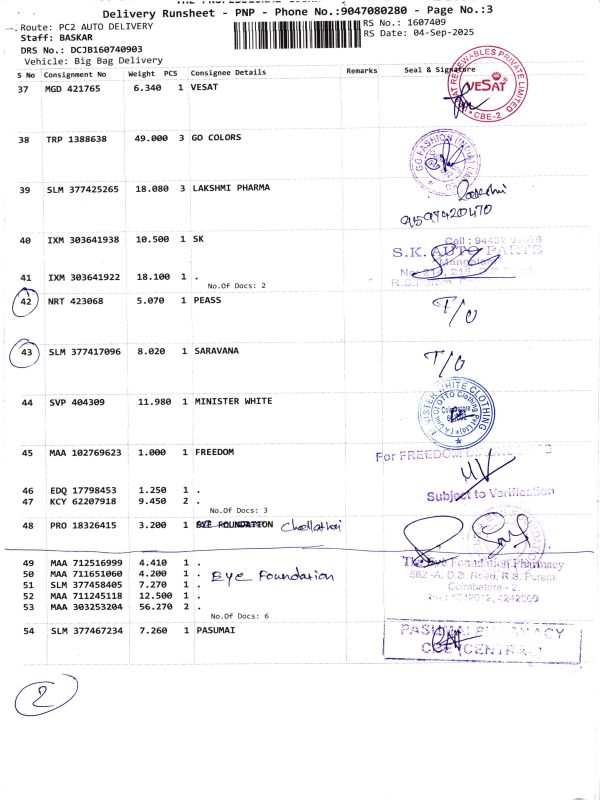 Delivery Runsheet - PNP - Phone No.:9047080280 - Page No.:3
Route: PC2 AUTO DELIVERY
RS No.: 1607409
Staff: BASKAR
RS Date: 04-Sep-2025
DRS No.: DCJB160740903
Vehicle: Big Bag Delivery
S No Consignment No Weight PCS Consignee Details Remarks Seal & Signature
37 MGD 421765 6.340 1 VESAT
VESAT
CBE-2
38 TRP 1388638 49.000 3 GO COLORS
GO FASHION (INDIA)
39 SLM 377425265 18.080 3 LAKSHMI PHARMA
9597420470
40 IXM 303641938 10.500 1 SK
S.K. AUTO PARTS
41 IXM 303641922 18.100 1 .
No.Of Docs: 2
42 NRT 423068 5.070 1 PEASS
T/O
43 SLM 377417096 8.020 1 SARAVANA
T/O
44 SVP 404309 11.980 1 MINISTER WHITE
WHITE CLOTHING
45 MAA 102769623 1.000 1 FREEDOM
For FREEDOM
46 EDQ 17798453 1.250 1 .
47 KCY 62207918 9.450 2 .
Subject to Verification
No.Of Docs: 3
48 PRO 18326415 3.200 1 EYE FOUNDATION
49 MAA 712516999 4.410 1 .
50 MAA 711651060 4.200 1 . Eye Foundation
51 SLM 377458405 7.270 1 .
52 MAA 711245118 12.500 1 .
53 MAA 303253204 56.270 2 .
The Eye Foundation Pharmacy
582-A, D.B. Road, R.S. Puram,
Coimbatore - 2.
No.Of Docs: 6
54 SLM 377467234 7.260 1 PASUMAI
PASUMAI PHARMACY
2